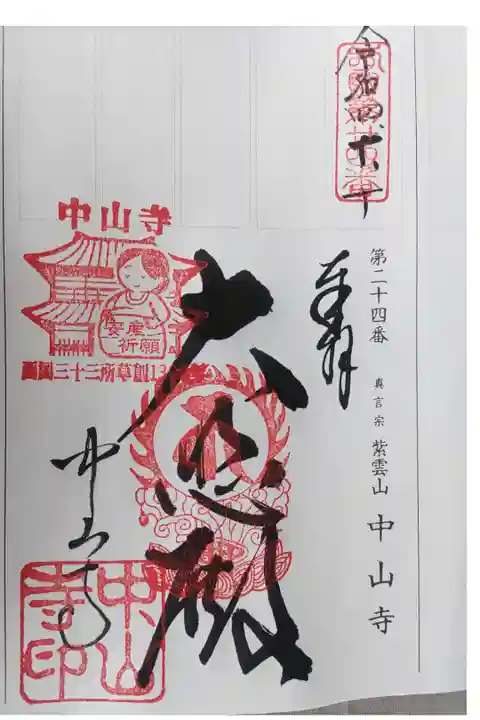 第二十四番 真言宗 紫雲山 中山寺
奉拝
大悲殿
中山寺
中山寺
安産
祈願
西国三十三所草創13
中山寺印